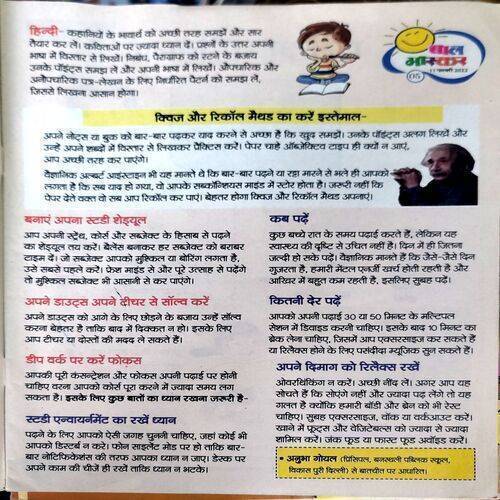 हिन्दी- कहानियों के भावार्थ को अच्छी तरह समझें और सार
तैयार कर लें। कविताओं पर ज्यादा ध्यान दें। प्रश्नों के उत्तर अपनी
भाषा में विस्तार से लिखें। निबंध, पैराग्राफ को रटने के बजाय
उनके पॉइंट्स समझ लें और अपनी भाषा में लिखें। औपचारिक और
अनौपचारिक पत्र-लेखन के लिए निर्धारित पैटर्न को समझ लें,
जिससे लिखना आसान होगा।
बाल
भास्कर
05
क्विज और रिकॉल मैथड का करें इस्तेमाल-
अपने नोट्स या बुक को बार-बार पढ़कर याद करने से अच्छा है कि खुद समझें। उनके पॉइंट्स अलग लिखें और
उन्हें अपने शब्दों में विस्तार से लिखकर प्रैक्टिस करें। पेपर चाहे ऑब्जेक्टिव टाइप ही क्यों न आएं,
आप अच्छी तरह कर पाएंगे।
वैज्ञानिक अल्बर्ट आइंस्टाइन भी यह मानते थे कि बार-बार पढ़ने या रट्टा मारने से भले ही आपको
लगता है कि सब याद हो गया, वो आपके सबकॉन्शियस माइंड में स्टोर होता है। जरूरी नहीं कि
पेपर देते वक्त वो सब आप रिकॉल कर पाएं। बेहतर होगा क्विज और रिकॉल मैथड अपनाएं।
बनाएं अपना स्टडी शेड्यूल
आप अपनी स्ट्रेंथ, कोर्स और सब्जेक्ट के हिसाब से पढ़ने
का शेड्यूल तय करें। बैलेंस बनाकर हर सब्जेक्ट को बराबर
टाइम दें। जो सब्जेक्ट आपको मुश्किल या बोरिंग लगता है,
उसे सबसे पहले करें। फ्रेश माइंड से और पूरे उत्साह से पढ़ेंगे
तो मुश्किल सब्जेक्ट भी आसानी से कर पाएंगे।
अपने डाउट्स अपने टीचर से सॉल्व करें
अपने डाउट्स को आगे के लिए छोड़ने के बजाय उन्हें सॉल्व
करना बेहतर है ताकि बाद में दिक्कत न हो। इसके लिए
आप टीचर या दोस्तों की मदद ले सकते हैं।
डीप वर्क पर करें फोकस
आपकी पूरी कंसन्ट्रेशन और फोकस अपनी पढ़ाई पर होनी
चाहिए वरना आपको कोर्स पूरा करने में ज्यादा समय लग
सकता है। इसके लिए कुछ बातों का ध्यान रखना जरूरी है-
स्टडी एन्वायर्नमेंट का रखें ध्यान
पढ़ने के लिए आपको ऐसी जगह चुननी चाहिए, जहां कोई भी
आपको डिस्टर्ब न करे। फोन साइलेंट मोड पर हो ताकि बार-
बार नोटिफिकेशंस की तरफ आपका ध्यान न जाए। डेस्क पर
अपने काम की चीजें ही रखें ताकि ध्यान न भटके।
कब पढ़ें
कुछ बच्चे रात के समय पढ़ाई करते हैं, लेकिन यह
स्वास्थ्य की दृष्टि से उचित नहीं है। दिन में ही जितना
जल्दी हो सके पढ़ें। वैज्ञानिक मानते हैं कि जैसे-जैसे दिन
गुजरता है, हमारी मेंटल एनर्जी खर्च होती रहती है और
आखिर में बहुत कम रहती है, इसलिए सुबह पढ़ें।
कितनी देर पढ़ें
आपको अपनी पढ़ाई 30 या 50 मिनट के मल्टिपल
सेशन में डिवाइड करनी चाहिए। इसके बाद 10 मिनट का
ब्रेक लेना चाहिए, जिसमें आप एक्सरसाइज कर सकते हैं
या रिलैक्स होने के लिए पसंदीदा म्यूजिक सुन सकते हैं।
अपने दिमाग को रिलैक्स रखें
ओवरथिंकिंग न करें। अच्छी नींद लें। अगर आप यह
सोचते हैं कि सोएंगे नहीं और ज्यादा पढ़ लेंगे तो यह
गलत है क्योंकि हमारी बॉडी और ब्रेन को भी रेस्ट
चाहिए। सुबह एक्सरसाइज, वॉक या वर्कआउट करें।
खाने में फ्रूट्स और वेजिटेबल्स को ज्यादा से ज्यादा
शामिल करें। जंक फूड या फास्ट फूड अवॉइड करें।
• अनुभा गोयल (प्रिंसिपल, बनस्थली पब्लिक स्कूल,
विकास पुरी दिल्ली) से बातचीत पर आधारित।